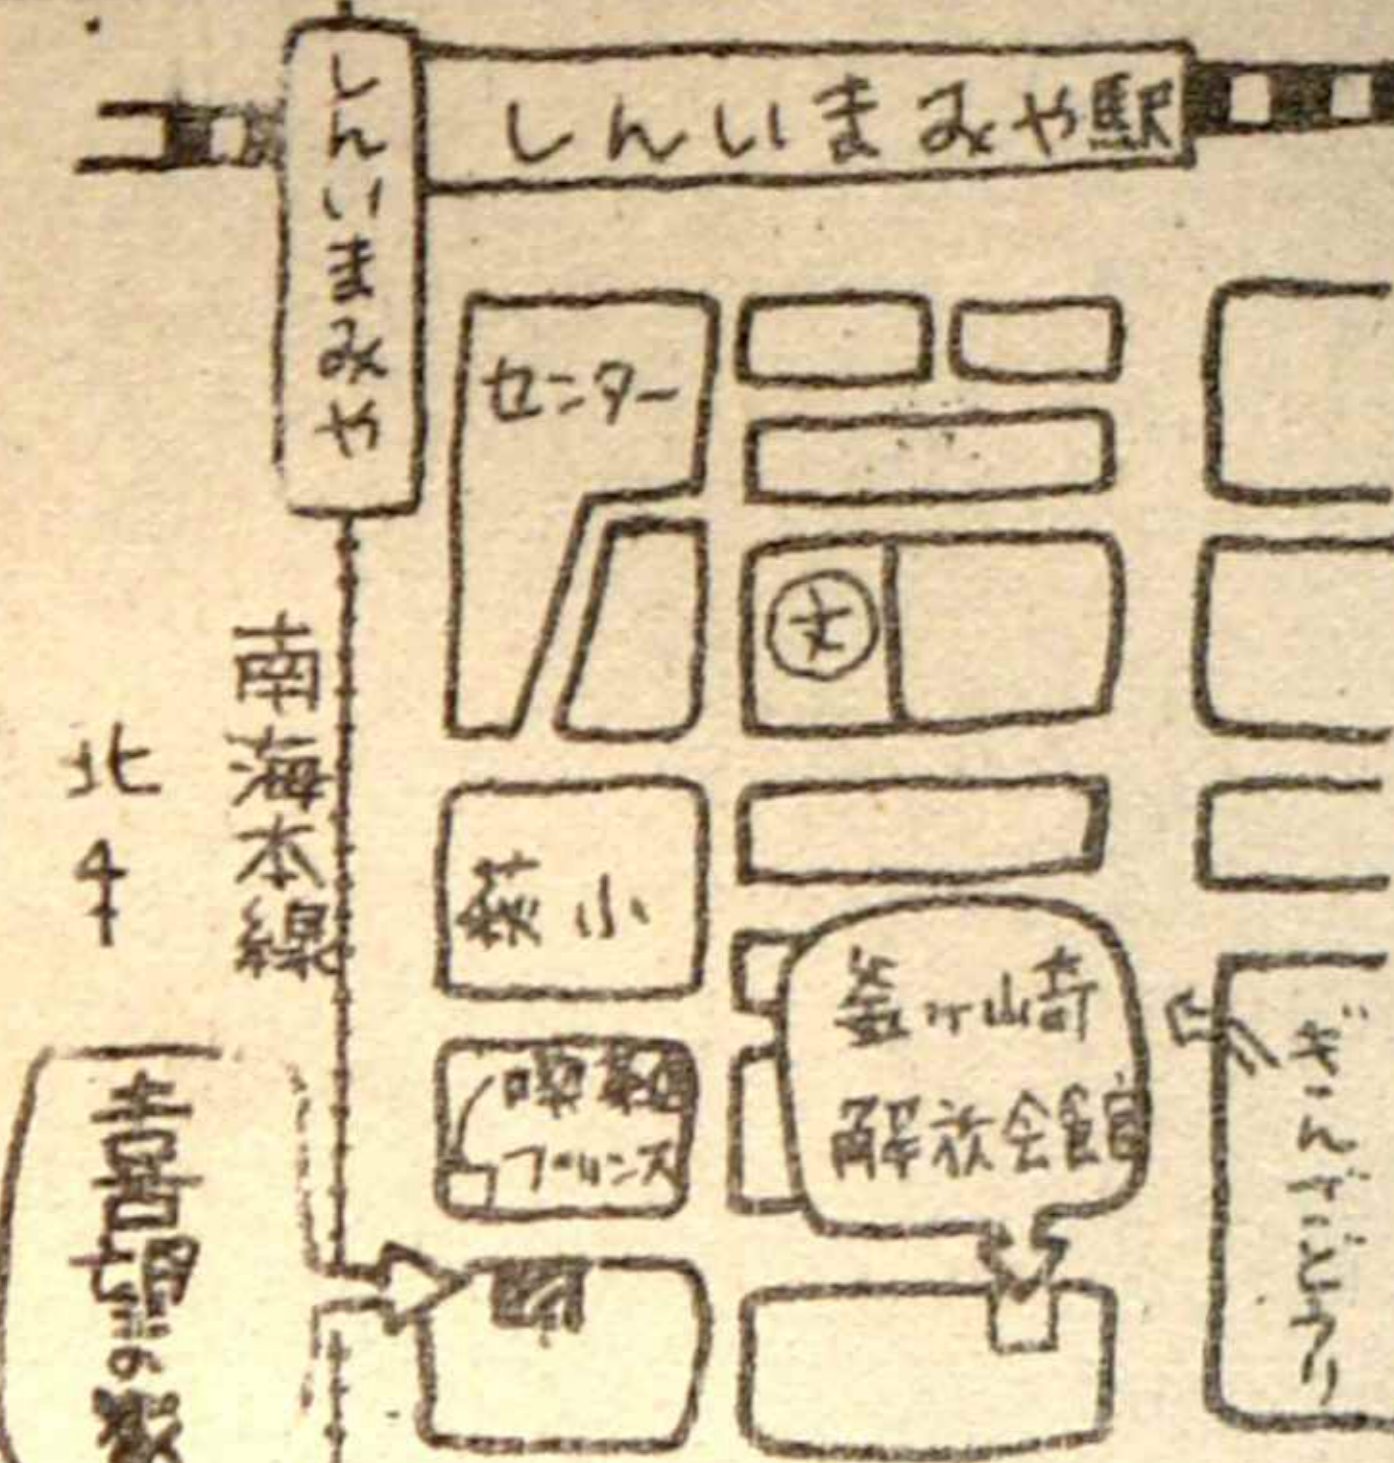 しんいまみや駅
しんいまみや
センター
文
南海本線
北
萩小
釜ヶ崎
解放会館
喫茶
プリンス
ぎんざどうり
喜望の家